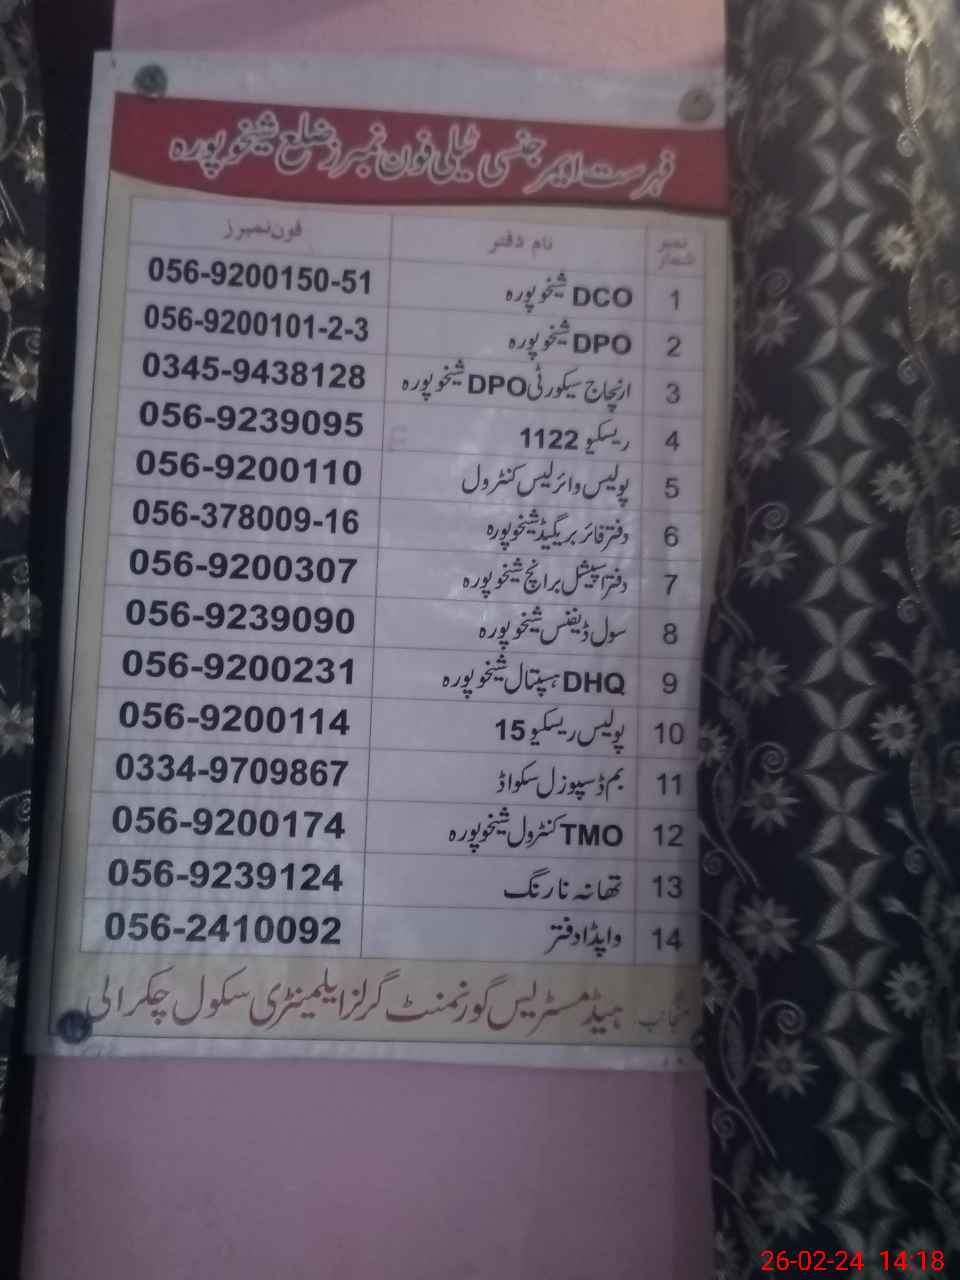 فہرست ایمرجنسی ٹیلی فون نمبرز ضلع شیخوپورہ
نمبر شمار نام دفتر فون نمبرز
1 DCO شیخوپورہ 056-9200150-51
2 DPO شیخوپورہ 056-9200101-2-3
3 انچارج سیکورٹی DPO شیخوپورہ 0345-9438128
4 ریسکیو 1122 056-9239095
5 پولیس وائرلیس کنٹرول 056-9200110
6 دفتر فائر بریگیڈ شیخوپورہ 056-378009-16
7 دفتر اسپیشل برانچ شیخوپورہ 056-9200307
8 سول ڈیفنس شیخوپورہ 056-9239090
9 DHQ ہسپتال شیخوپورہ 056-9200231
10 پولیس ریسکیو 15 056-9200114
11 بم ڈسپوزل سکواڈ 0334-9709867
12 TMO کنٹرول شیخوپورہ 056-9200174
13 تھانہ نارنگ 056-9239124
14 واپڈا دفتر 056-2410092
منجانب ہیڈ مسٹریس گورنمنٹ گرلز ایلیمنٹری سکول چکرالی
26-02-24 14:18